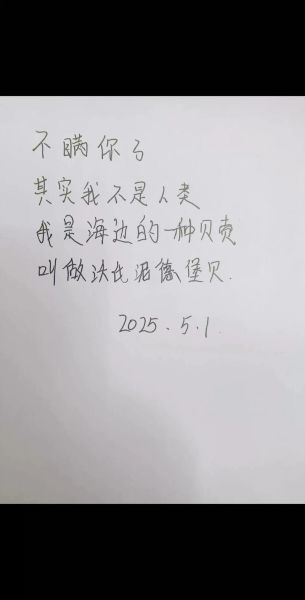 不瞒你了
其实我不是人类
我是海边的一种贝壳
叫做沃比泥德堡贝.
2025.5.1